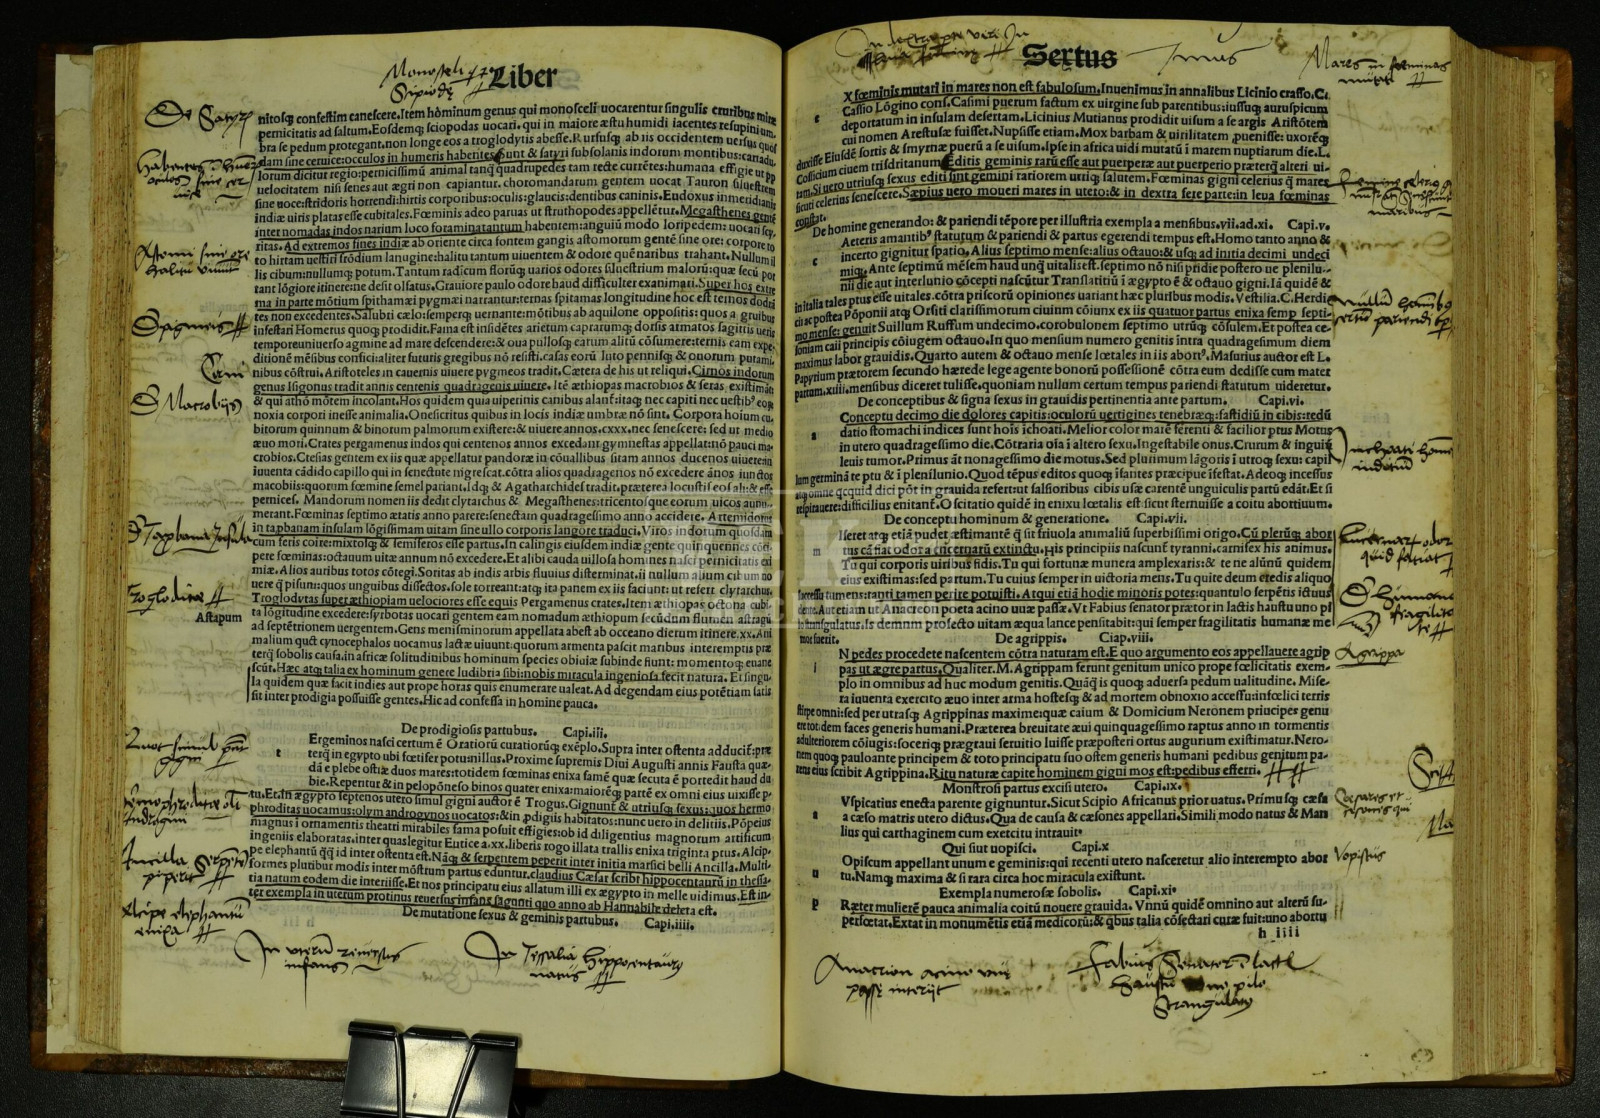 Liber
nitosq; confestim canescere. Item hominum genus qui monosceli uocarentur singulis cruribus miræ
pernicitatis ad saltum. Eosdemq; sciopodas uocari. qui in maiore æstu humidi iacentes resupini um-
bra se pedum protegant. non longe eos a troglodytis abesse. Rursusq; ab iis occidentem uersus quos
dam sine ceruice: occulos in humeris habentes. Sunt & satyri subsolanis indorum montibus: cartadu-
lorum dicitur regio: pernicissimū animal
uelocitatem nisi senes aut ægri non capiantur. choromandarum gentem uocat Tauron siluestrem
sine uoce: stridoris horrendi: hirtis corporibus: oculis: glaucis: dentibus caninis. Eudoxus in meridianis
indiæ uiris platas esse cubitales. Fœminis adeo paruas ut struthopodes appellētur. Megasthenes gentē
inter nomadas indos narium loco foramina tantum habentem: anguiū modo loripedem: uocari scy-
ritas. Ad extremos fines indiæ ab oriente circa fontem gangis astomorum gentē sine ore: corpore to
to hirtam uestiri frōdium lanugine: halitu tantum uiuentem & odore quē naribus trahant. Nullum il
lis cibum: nullumq; potum. Tantum radicum florūq; uarios odores siluestrium malorū: quæ secū por
tant lōgiore itinere: ne desit olfatus. Grauiore paulo odore haud difficulter exanimari. Super hos extre
ma in parte mōtium spithamæi pygmæi narrantur: ternas spitamas longitudine hoc est ternos dodrā
tes non excedentes. Salubri cælo: semperq; uernante: mōtibus ab aquilone oppositis: quos a gruibus
infestari Hometus quoq; prodidit. Fama est insidētes arietum caprarumq; dorsis armatos sagittis ueris
tempore uniuerso agmine ad mare descendere: & oua pullosq; earum alitū cōsumere: ternis eam expe-
ditionē mēsibus confici aliter futuris gregibus nō resisti. casas eorū luto pennisq; & ouorum putami-
nibus cōstrui. Aristoteles in cauernis uiuere pygmeos tradit. Cætera de his ut reliqui. Cirnos indorum
genus Isigonus tradit annis centenis quadragenis uiuere. Itē æthiopas macrobios & seras existimāt
& qui athō mōtem incolant. Hos quidem quia uiperinis carnibus
noxia corpori inesse animalia. Onesicritus quibus in locis indiæ umbræ nō sint. Corpora hoīum cu-
bitorum quinnum & binotum palmorum existere: & uiuere annos .cxxx. nec senescere: sed ut medio
æuo mori. Crates pergamenus indos qui centenos annos excedant gymnestas appellat: nō pauci ma-
crobios. Ctesias gentem ex iis quæ appellatur pandoræ in cōuallibus sitam annos ducenos uiuere: in
iuuenta cādido capillo qui in senectute nigrescat. cōtra alios quadragenos nō excedere ānos iunctos
macobiis: quorum fœmine semel pariant. Idq; & Agatharchides tradit. præterea locustis eos ali: & esse
pernices. Mandorum nomen iis dedit clytarchus & Megasthenes: tricentosque eorum uicos annu-
merant. Fœminas septimo ætatis anno parere: senectam quadragessimo anno accidere. Artemidorus
in tapbanam insulam lōgissimam uitam sine ullo corporis langore traduci.
cum feris coire: mixtosq; & semiferos esse partus. In calingis eiusdem indiæ gente quinquennes cōci-
pere fœminas: octauum uitæ annum nō excedere. Et alibi cauda uillosa homines nasci pernicitatis exi
miæ. Alios auribus totos cōtegi. Soritas ab indis arbis fluuius disterminat.
Troglodytas super æthiopiam uelociores esse equis Pergamenus crates. Item æthiopas octona cubi-
ta lōgitudine excedere: syrbotas uocari gentem eam nomadum æthiopum secūdum flumen astragū
Astapum
ad septētrionem uergentem. Gens menisminorum appellata abest ab occeano dierum itinere .xx. Ani
malium quæ cynocephalos uocamus lacte uiuunt: quorum armenta pascit maribus interemptis præ
terq; sobolis causa. in africæ solitudinibus hominum species obiuiæ subinde fiunt: momentoq; euane
scūt. Hæc atq; talia ex hominum genere ludibria sibi: nobis miracula ingeniosa fecit natura. Et singu-
la quidem quæ facit indies aut prope horas quis enumerare ualeat. Ad degendam eius potētiam satis
sit inter prodigia possuisse gentes. Hic ad confessa in homine pauca.
De prodigiosis partubus. Capi.iii.
t Ergeminos nasci certum ē Oratiorū curatiorūq; exēplo. Supra inter ostenta adducit: præ
terq; in egypto ubi fœtifer potu: nillus. Proxime supremis Diui Augusti annis Fausta quæ-
dā e plebe ostiæ duos mares: totidem fœminas enixa samē quæ secuta ē portedit haud du
bie. Repentur & in pelopōneso binos quater enixa: maiorēq; partē ex omni eius uixisse p-
tu. Et in ægypto septenos utero simul gigni auctor ē Trogus. Gignunt & utriusq; sexus: quos hermo
phroditas uocamus: olym androgynos uocatos: & in prodigiis habitatos: nunc uero in delitiis. Pōpeius
magnus ī ornamentis theatri mirabiles fama posuit effigies: ob id diligentius magnorum artificum
ingeniis elaboratas. inter quas legitur Eutice a .xx. liberis rogo illata trallis enixa triginta ptus. Alcip-
pe elephantū q̄q̄ id inter ostenta est. Nāq; & serpentem peperit inter initia marsici belli Ancilla. Multi-
formes plutibur modis inter mōstrum partus eduntur. claudius Cæsar scribt hippocentaurū in thessa-
tia natum eodem die interiisse. Et nos principatu eius allatum illi ex ægypto in melle uidimus. Est in-
ter exempla in uterum protinus reuersus infans sagonti quo anno ab Hannabile deleta est.
De mutatione sexus & geminis partubus. Capi.iiii.
In uterū reuersus
infans
In Tessalia hippocentaurus
natus
Sextus
e X fœminis mutari in mares non est fabulosum. Inuenimus in annalibus Licinio crasso. C.
Cassio Lōgino cons. Casimi puerum factum ex uirgine sub parentibus: iussuq; auruspicum
deportatum in insulam desertam. Licinius Mutianus prodidit uisum a se argis Aristōtem
cui nomen Arestusæ fuisset. Nupsisse etiam. Mox barbam & uirilitatem puenisse: uxorēq;
duxisse Eiusdē sortis & smyrnæ puerū a se uisum. Ipse in africa uidi mutatū ī marem nuptiarum die. L.
Cosficium ciuem trisdritanum. Editis geminis rarū esse aut puerperæ aut puerperio præterq; alteri ui-
tam. Si uero utriusq; sexus editi sint gemini ratiorem utriq; salutem. Fœminas gigni celerius q̄ mares
sicuti celerius senescere. Sæpius uero moueri mares in utero: & in dextra fere parte: in leua fœminas
constat.
De homine generando: & pariendi tēpore per illustria exempla a mensibus .vii. ad .xi. Capi.v.
c Aeteris amantib9 statutum & pariendi & partus egerendi tempus est. Homo tanto anno &
incerto gignitur spatio. Alius septimo mense: alius octauo: & usq; ad initia decimi undeci
miq;. Ante septimū mēsem haud unq̄ uitalis est. septimo nō nisi pridie postero ue plenilu-
nii die aut interlunio cōcepti nascūtur Translatitiū ī ægypto ē & octauo gigni. Iā quidē &
in italia tales ptus esse uitales. cōtra priscorū opiniones uariant hæc pluribus modis. Vestilia. C. Herdi
cii ac postea Pōponii atq; Orsiti clarissimorum ciuium cōiunx ex iis quatuor partus enixa semp septi-
mo mense: genuit Suillum Ruffum undecimo. corobulonem septimo utrūq; cōsulem. Et postea ce-
soniam caii principis cōiugem octauo. In quo mensium numero genitis intra quadragesimum diem
maximus labor grauidis. Quarto autem & octauo mense lœtales in iis abort9. Masurius auctor est L.
Papyrium prætorem secundo hærede lege agente bonorū possessionē cōtra eum dedisse cum mater
partum .xiii. mensibus diceret tulisse. quoniam nullum certum tempus pariendi statutum uideretur.
De conceptibus & signa sexus in grauidis pertinentia ante partum. Capi.vi.
a Conceptu decimo die dolores capitis: oculorū uertigines tenebræq;: fastidiū in cibis: redū
datio stomachi indices sunt hoīs īchoati. Melior color marē ferenti & facilior ptus Motus
in utero quadragessimo die. Cōtraria oīa ī altero sexu. Ingestabile onus. Crurum & inguinis
leuis tumor. Primus āt nonagessimo die motus. Sed plurimum lāgoris ī utroq; sexu: capil
lum germinā te ptu & ī plenilunio. Quod tēpus editos quoq; īfantes præcipue īfestat. Adeoq; incessus
atq; omne qcquid dici pōt in grauida refert: ut salsioribus cibis usæ carentē unguiculis partū edāt. Et si
respirauere: difficilius enitant. Oscitatio quidē in enixu lœtalis est sicut sternuisse a coitu abortiuum.
De conceptu hominum & generatione. Capi.vii.
m Iseret atq; etiā pudet æstimantē q̄ sit friuola animaliū superbissimi origo. Cū plerūq; abor
tus cā fiat odor a lucernarū extinctu. His principiis nascunt tyranni. carnifex his animus.
Tu qui corporis uiribus fidis. Tu qui fortunæ munera amplexaris: & te ne alūnū quidem
eius existimas: sed partum. Tu cuius semper in uictoria mens. Tu quite deum credis aliquo
successu tumens: tanti tamen perire potuisti. Atqui etiā hodie minoris potes: quantulo serpētis ictus
dente. Aut etiam ut Anacreon poeta acino uuæ passæ. Vt Fabius senator prætor in lactis haustu uno pi
lo strangulatus. Is demum profecto uitam æqua lance pensitabit: qui semper fragilitatis humanæ me
mor fuerit.
De agrippis. Ciap.viii.
i N pedes procedete nascentem cōtra naturam est. E quo argumento eos appellauere agrip
pas ut ægre partus. Qualiter. M. Agrippam ferunt genitum unico prope fœlicitatis exem-
plo in omnibus ad huc modum genitis. Quāq̄ is quoq; aduersa pedum ualitudine. Mise-
ra iuuenta exercito æuo inter arma hostesq; & ad mortem obnoxio accessu: infœlici terris
stirpe omni: sed per utrasq; Agrippinas maxime: quæ caium & Domicium Neronem priucipes genu
ere tot dem faces generis humani. Præterea breuitate æui quinquagessimo raptus anno in tormentis
adulteriorem cōiugis: soceriq; prægraui seruitio luisse præposteri ortus augurium existimatur. Nero-
nem quoq; pauloante principem & toto principatu suo ostem generis humani pedibus genitum pa-
rens eius scribit Agrippina. Ritu naturæ capite hominem gigni mos est: pedibus efferri.
Monstrosi partus excisi utero. Capi.ix.
a Vspicatius enecta parente gignuntur. Sicut Scipio Africanus prior uatus. Primusq; cæsa
a cæso matris utero dictus. Qua de causa & cæsones appellati. Simili modo natus & Man
lius qui carthaginem cum exetcitu intrauit.
Qui siut uopisci. Capi.x
u Opiscum appellant unum e geminis: qui recenti utero nasceretur alio interempto abor
tu. Namq; maxima & si rara circa hoc miracula existunt.
Exempla numerosæ sobolis. Capi.xi.
p Ræter mulierē pauca animalia coitū nouere grauida. Vnnū quidē omnino aut alterū su-
perfœtat. Extat in monumētis etiā medicorū: & qbus talia cōsectari curæ fuit: uno abortu
h iiii
Agrippa
Vopiscus
Anacrion acino uue
passe interijt
Fabius Senator ī lactis
haustu uno pilo
strangulatus